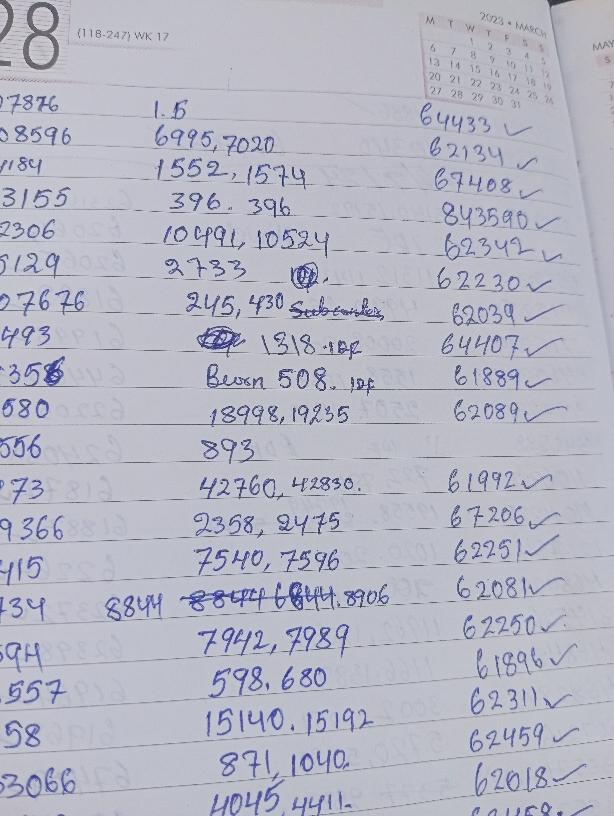 28
(118-247) WK 17
2023 • MARCH
M T W T F S S
1 2 3 4 5
6 7 8 9 10 11 12
13 14 15 16 17 18 19
20 21 22 23 24 25 26
27 28 29 30 31
MAY
S
07876 1.5 64433 ✓
08596 6995,7020 62134 ✓
4184 1552, 1574 67408 ✓
3155 396. 396 843590 ✓
2306 10491, 10524 62342 ✓
5129 2733 62230 ✓
07676 245, 430 62039 ✓
493 1318. IDF 64407 ✓
508. IDF 61889 ✓
580 18998, 19235 62089 ✓
556 893
273 42760, 42830. 61992 ✓
9366 2358, 2475 67206 ✓
415 7540, 7596 62251 ✓
734 8844 8906 62081 ✓
594 7942, 7989 62250 ✓
557 598. 680 61896 ✓
58 15140. 15192 62311 ✓
53066 871, 1040. 62459 ✓
4045, 4411. 62018 ✓